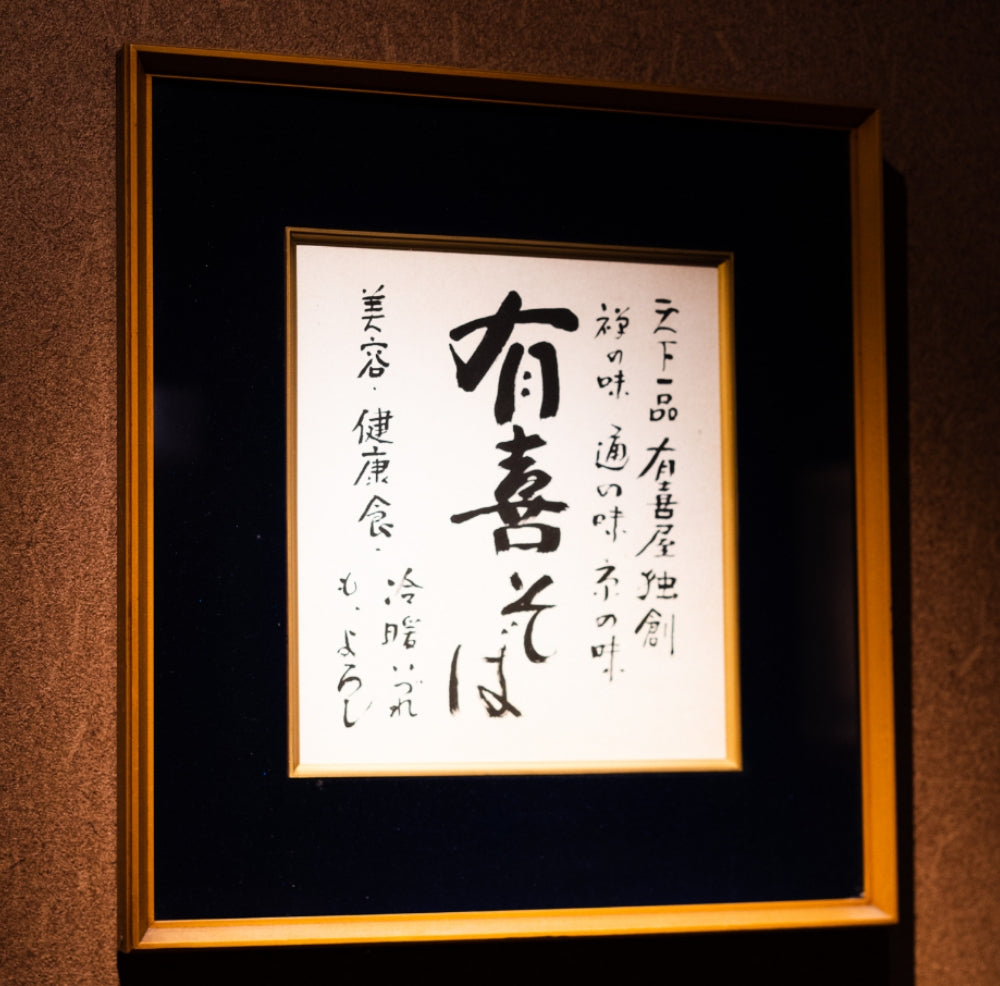 天下一品 有喜屋 独創
禅の味 通の味 京の味
有喜そば
美容・健康食・
冷暖いづれ
も、よろし